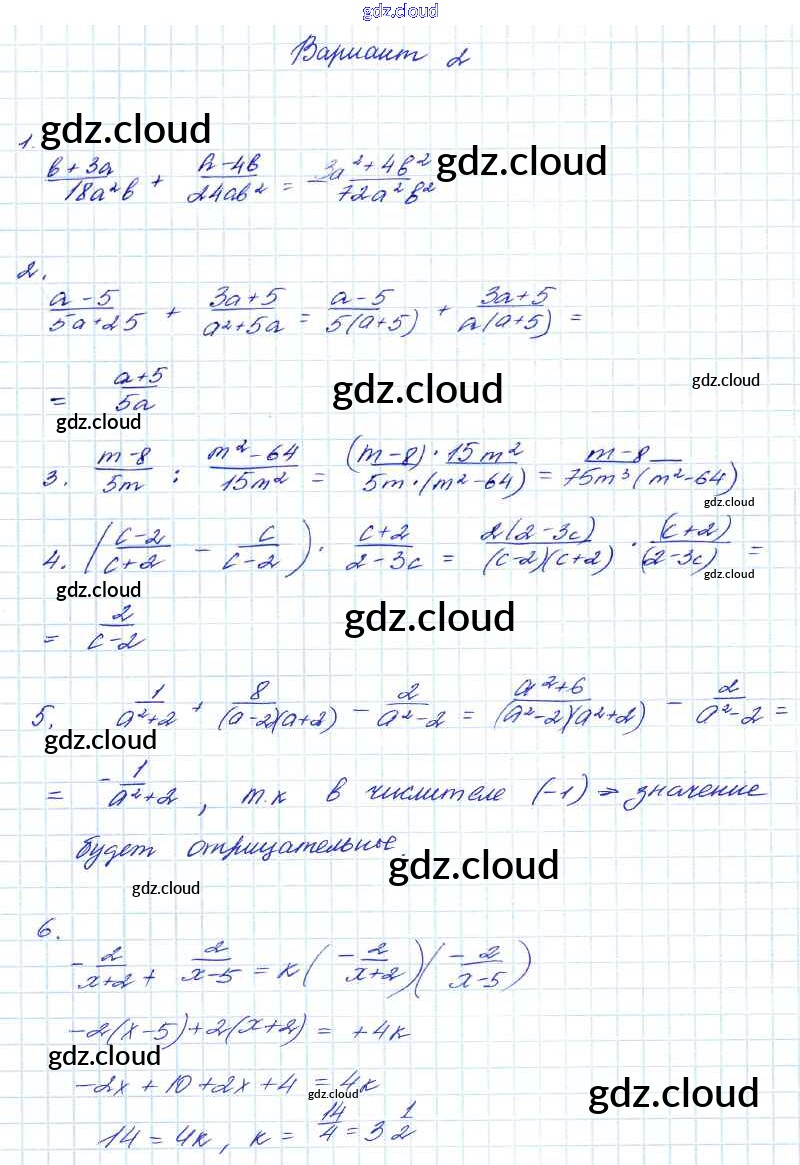 gdz.cloud
Вариант 2
gdz.cloud
1.
(в+3а)/(18a²в) + (а-4в)/(24ав²) = (3a²+4в²)/(72a²в²)
gdz.cloud
2.
(a-5)/(5a+25) + (3a+5)/(a²+5a) = (a-5)/(5(a+5)) + (3a+5)/(a(a+5)) =
= (a+5)/(5a)
gdz.cloud gdz.cloud gdz.cloud
3. (m-8)/(5m) : (m²-64)/(15m²) = ((m-8)·15m²)/(5m·(m²-64)) = (m-8)/(75m³(m²-64))
gdz.cloud
4. ((c-2)/(c+2) - c/(c-2)) · (c+2)/(2-3c) = (2(2-3c))/((c-2)(c+2)) · (c+2)/(2-3c) =
gdz.cloud gdz.cloud
= 2/(c-2)
gdz.cloud
5. 1/(a²+2) + 8/((a-2)(a+2)) - 2/(a²-2) = (a²+6)/((a²-2)(a²+2)) - 2/(a²-2) =
gdz.cloud
= -1/(a²+2), т.к в числителе (-1) => значение
будет отрицательные.
gdz.cloud
gdz.cloud
6.
-2/(x+2) + 2/(x-5) = к(-2/(x+2))(-2/(x-5))
-2(x-5)+2(x+2) = +4к
gdz.cloud
-2x+10+2x+4 = 4к
gdz.cloud gdz.cloud
14 = 4к, к = 14/4 = 3 1/2